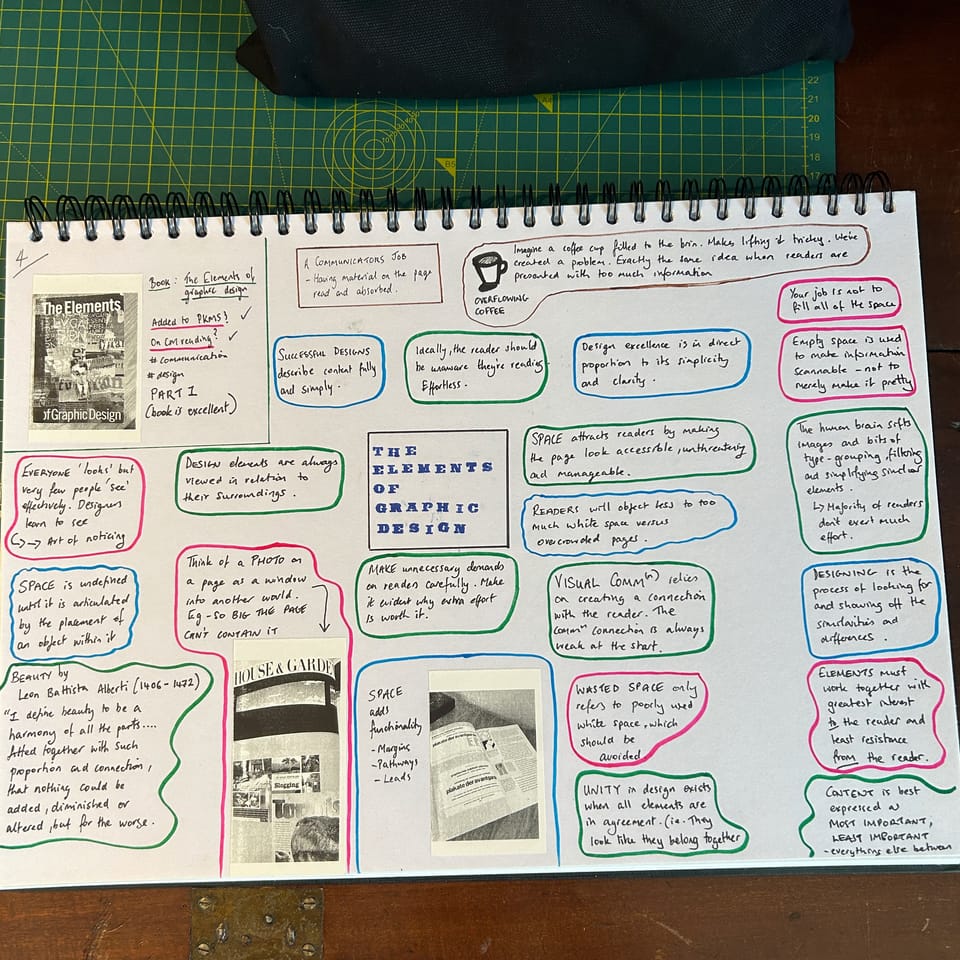 4
Book: The Elements of
graphic design
Added to PKMS? ✓
On CM reading? ✓
# communication
# design
PART I
(book is excellent)
The Elements
of Graphic Design
A COMMUNICATORS JOB
- Having material on the page
read and absorbed.
OVERFLOWING
COFFEE
Imagine a coffee cup filled to the brim. Makes lifting it tricky. We've
created a problem. Exactly the same idea when readers are
presented with too much information
Your job is not to
fill all of the space
SUCCESSFUL DESIGNS
describe content fully
and simply.
Ideally, the reader should
be unaware they're reading
Effortless.
Design excellence is in direct
proportion to its simplicity
and clarity.
Empty space is used
to make information
scannable - not to
merely make it pretty
EVERYONE 'looks' but
very few people 'see'
effectively. Designers
learn to see
↳→ Art of noticing
DESIGN elements are always
viewed in relation to
their surroundings.
THE
ELEMENTS
OF
GRAPHIC
DESIGN
SPACE attracts readers by making
the page look accessible, unthreatening
and manageable.
READERS will object less to too
much white space versus
overcrowded pages.
The human brain sifts
images and bits of
type - grouping, filtering
and simplifying similar
elements.
↳ Majority of readers
don't exert much
effort.
SPACE is undefined
until it is articulated
by the placement of
an object within it
Think of a PHOTO on
a page as a window
into another world.
Eg - SO BIG THE PAGE
CAN'T CONTAIN IT
MAKE unnecessary demands
on readers carefully. Make
it evident why extra effort
is worth it.
VISUAL COMMⁿ) relies
on creating a connection
with the reader. The
commⁿ connection is always
weak at the start.
DESIGNING is the
process of looking for
and showing off the
similarities and
differences.
BEAUTY by
Leon Battista Alberti (1406-1472)
"I define beauty to be a
harmony of all the parts....
fitted together with such
proportion and connection,
that nothing could be
added, diminished or
altered, but for the worse.
HOUSE & GARDE
Blogging
SPACE
adds
functionality
- Margins
- Pathways
- Leads
plakate der avantgarde
WASTED SPACE only
refers to poorly used
white space, which
should be
avoided
ELEMENTS must
work together with
greatest interest
to the reader and
least resistance
from the reader.
UNITY in design exists
when all elements are
in agreement. (ie. They
look like they belong together
CONTENT is best
expressed as
MOST IMPORTANT,
LEAST IMPORTANT
- everything else between
22
21
20
19
18
17
B5